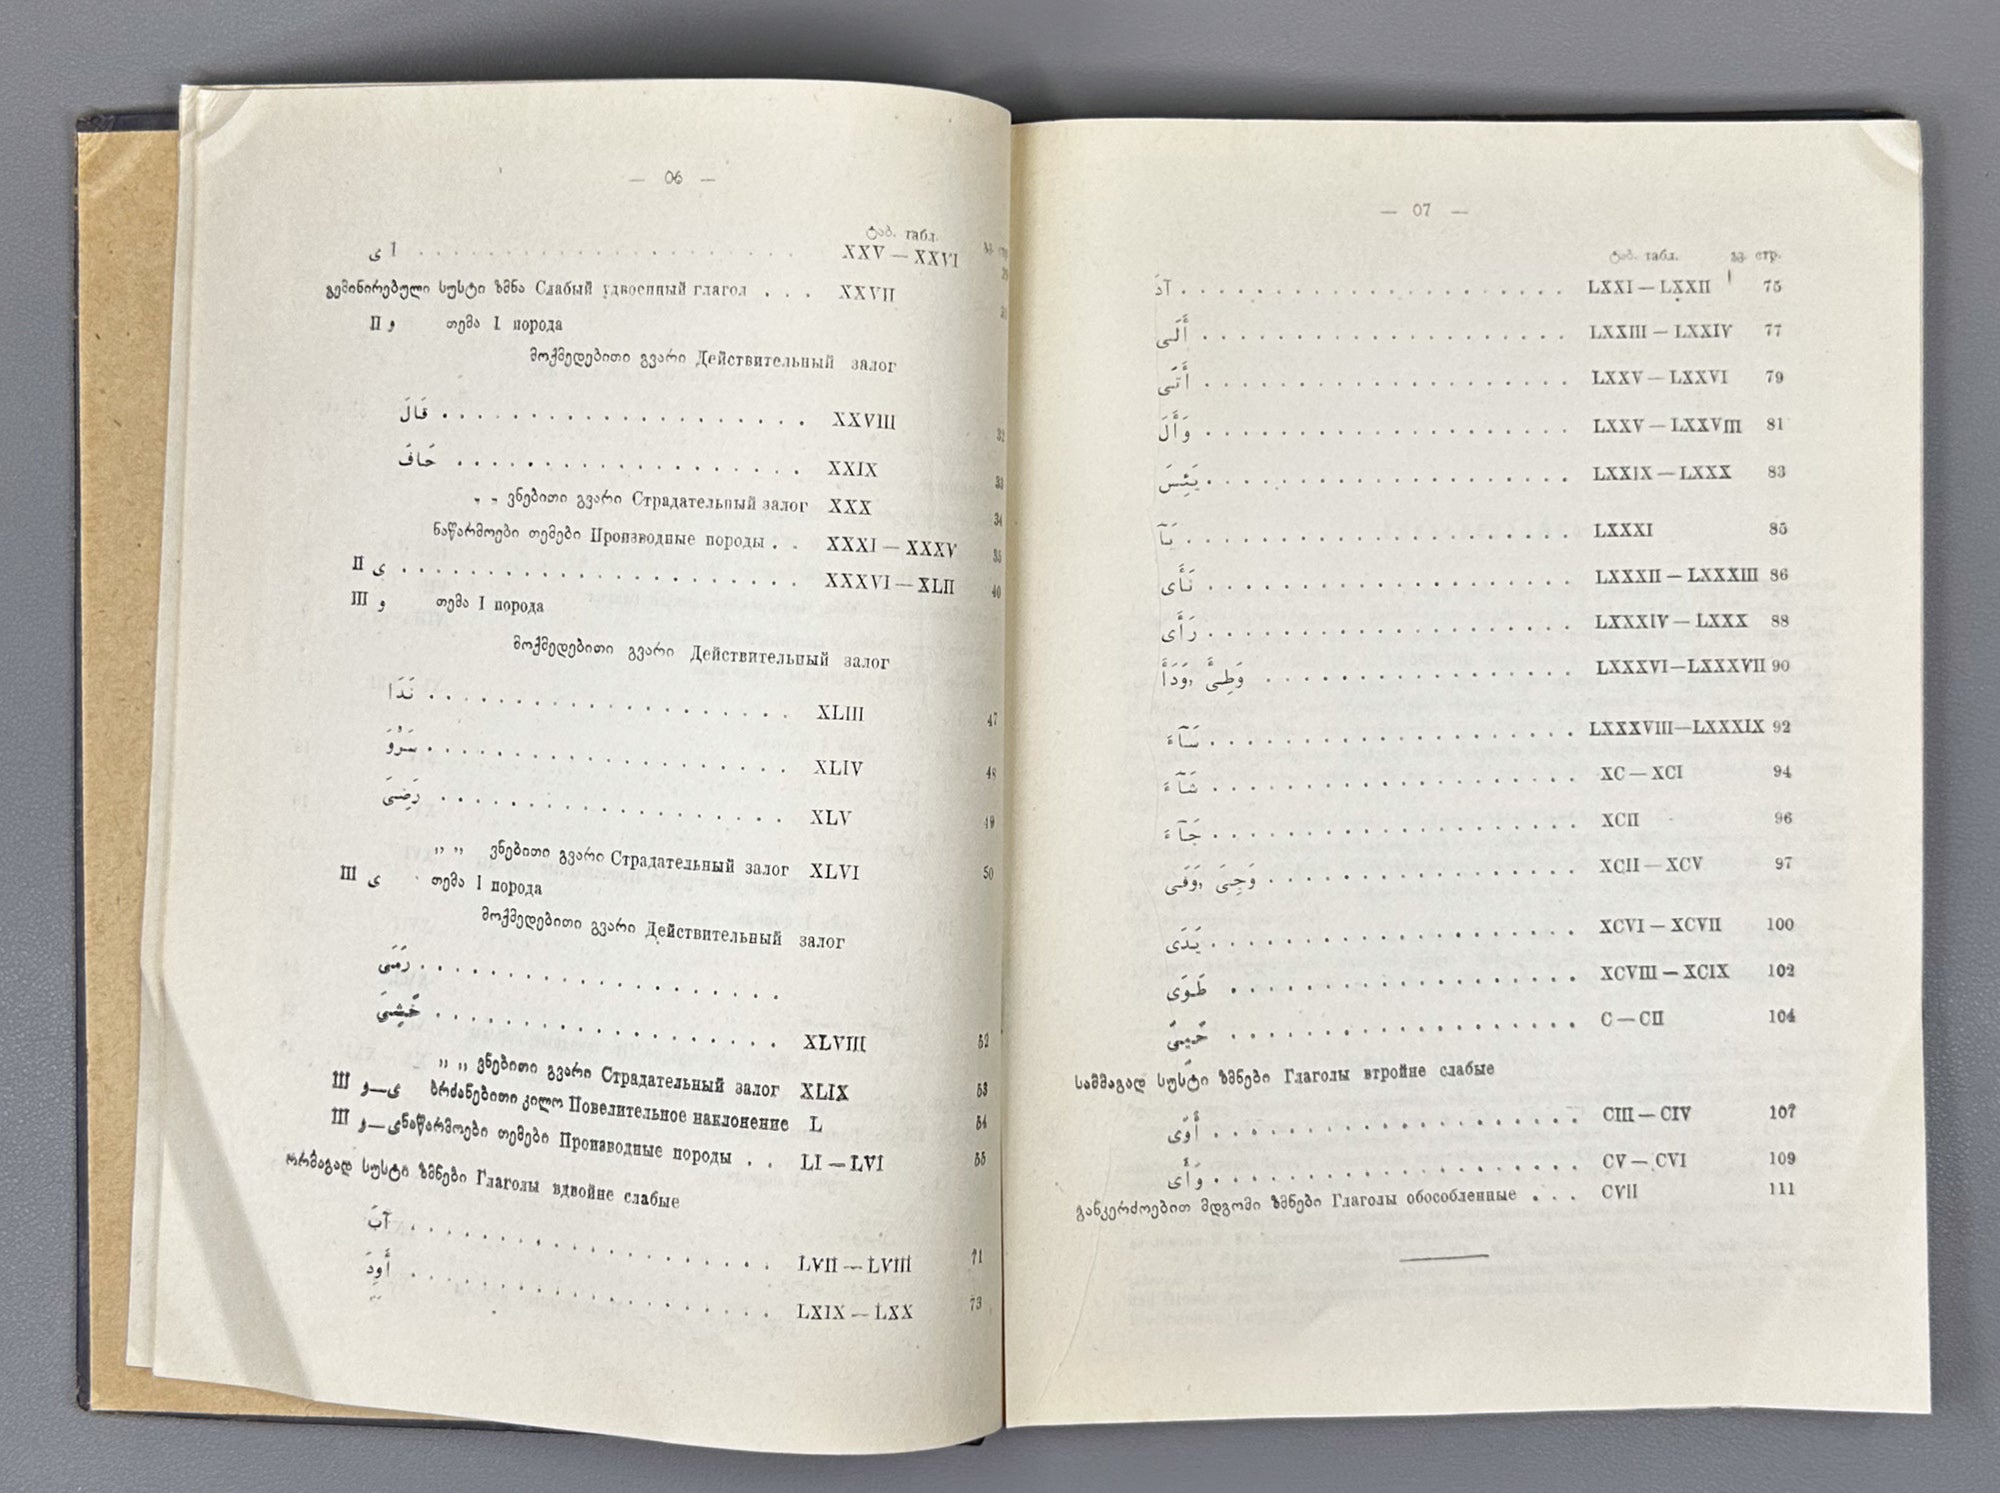 — 06 —
ტაბ. табл.
გვ. стр
I ی . . . . . . . . . . . . . . . . . . XXV — XXVI 29
გემინირებული სუსტი ზმნა Слабый удвоенный глагол . . . XXVII 31
II و თემა I порода
მოქმედებითი გვარი Действительный залог
قَالَ . . . . . . . . . . . . . . . . . . XXVIII 32
خَافَ . . . . . . . . . . . . . . . . . . XXIX 33
„ „ ვნებითი გვარი Страдательный залог XXX 34
ნაწარმოები თემები Производные породы . . XXXI — XXXV 35
II ی . . . . . . . . . . . . . . . . . . XXXVI — XLII 40
III و თემა I порода
მოქმედებითი გვარი Действительный залог
نَدَا . . . . . . . . . . . . . . . . . . XLIII 47
سَرُوَ . . . . . . . . . . . . . . . . . . XLIV 48
رَضِىَ . . . . . . . . . . . . . . . . . . XLV 49
„ „ ვნებითი გვარი Страдательный залог XLVI 50
III ی თემა I порода
მოქმედებითი გვარი Действительный залог
رَمَى . . . . . . . . . . . . . . . . . .
خَشِىَ . . . . . . . . . . . . . . . . . . XLVIII 52
„ „ ვნებითი გვარი Страдательный залог XLIX 53
III و—ی ბრძანებითი კილო Повелительное наклонение L 54
III و—ی ნაწარმოები თემები Производные породы . . LI — LVI 55
ორმაგად სუსტი ზმნები Глаголы вдвойне слабые
آبَ . . . . . . . . . . . . . . . . . . LVII — LVIII 71
أَوِدَ . . . . . . . . . . . . . . . . . . LXIX — LXX 73
— 07 —
ტაბ. табл. გვ. стр.
آدَ . . . . . . . . . . . . . . . . . . LXXI — LXXII 75
أَلَى . . . . . . . . . . . . . . . . . . LXXIII — LXXIV 77
أَتَى . . . . . . . . . . . . . . . . . . LXXV — LXXVI 79
وَأَلَ . . . . . . . . . . . . . . . . . . LXXV — LXXVIII 81
يَئِسَ . . . . . . . . . . . . . . . . . . LXXIX — LXXX 83
. . . . . . . . . . . . . . . . . . LXXXI 85
نَأَى . . . . . . . . . . . . . . . . . . LXXXII — LXXXIII 86
رَأَى . . . . . . . . . . . . . . . . . . LXXXIV — LXXX 88
وَطِئَ ,وَدَأَ . . . . . . . . . . . . . . LXXXVI—LXXXVII 90
سَآءَ . . . . . . . . . . . . . . . . . . LXXXVIII—LXXXIX 92
شَآءَ . . . . . . . . . . . . . . . . . . XC — XCI 94
جَآءَ . . . . . . . . . . . . . . . . . . XCII 96
وَجِىَ ,وَقَى . . . . . . . . . . . . . . XCII — XCV 97
يَدَى . . . . . . . . . . . . . . . . . . XCVI — XCVII 100
طَوَى . . . . . . . . . . . . . . . . . . XCVIII — XCIX 102
حَيِىَ . . . . . . . . . . . . . . . . . . C — CII 104
სამმაგად სუსტი ზმნები Глаголы втройне слабые
أَوَى . . . . . . . . . . . . . . . . . . CIII — CIV 107
وَأَى . . . . . . . . . . . . . . . . . . CV — CVI 109
განკერძოებით მდგომი ზმნები Глаголы обособленные . . . CVII 111